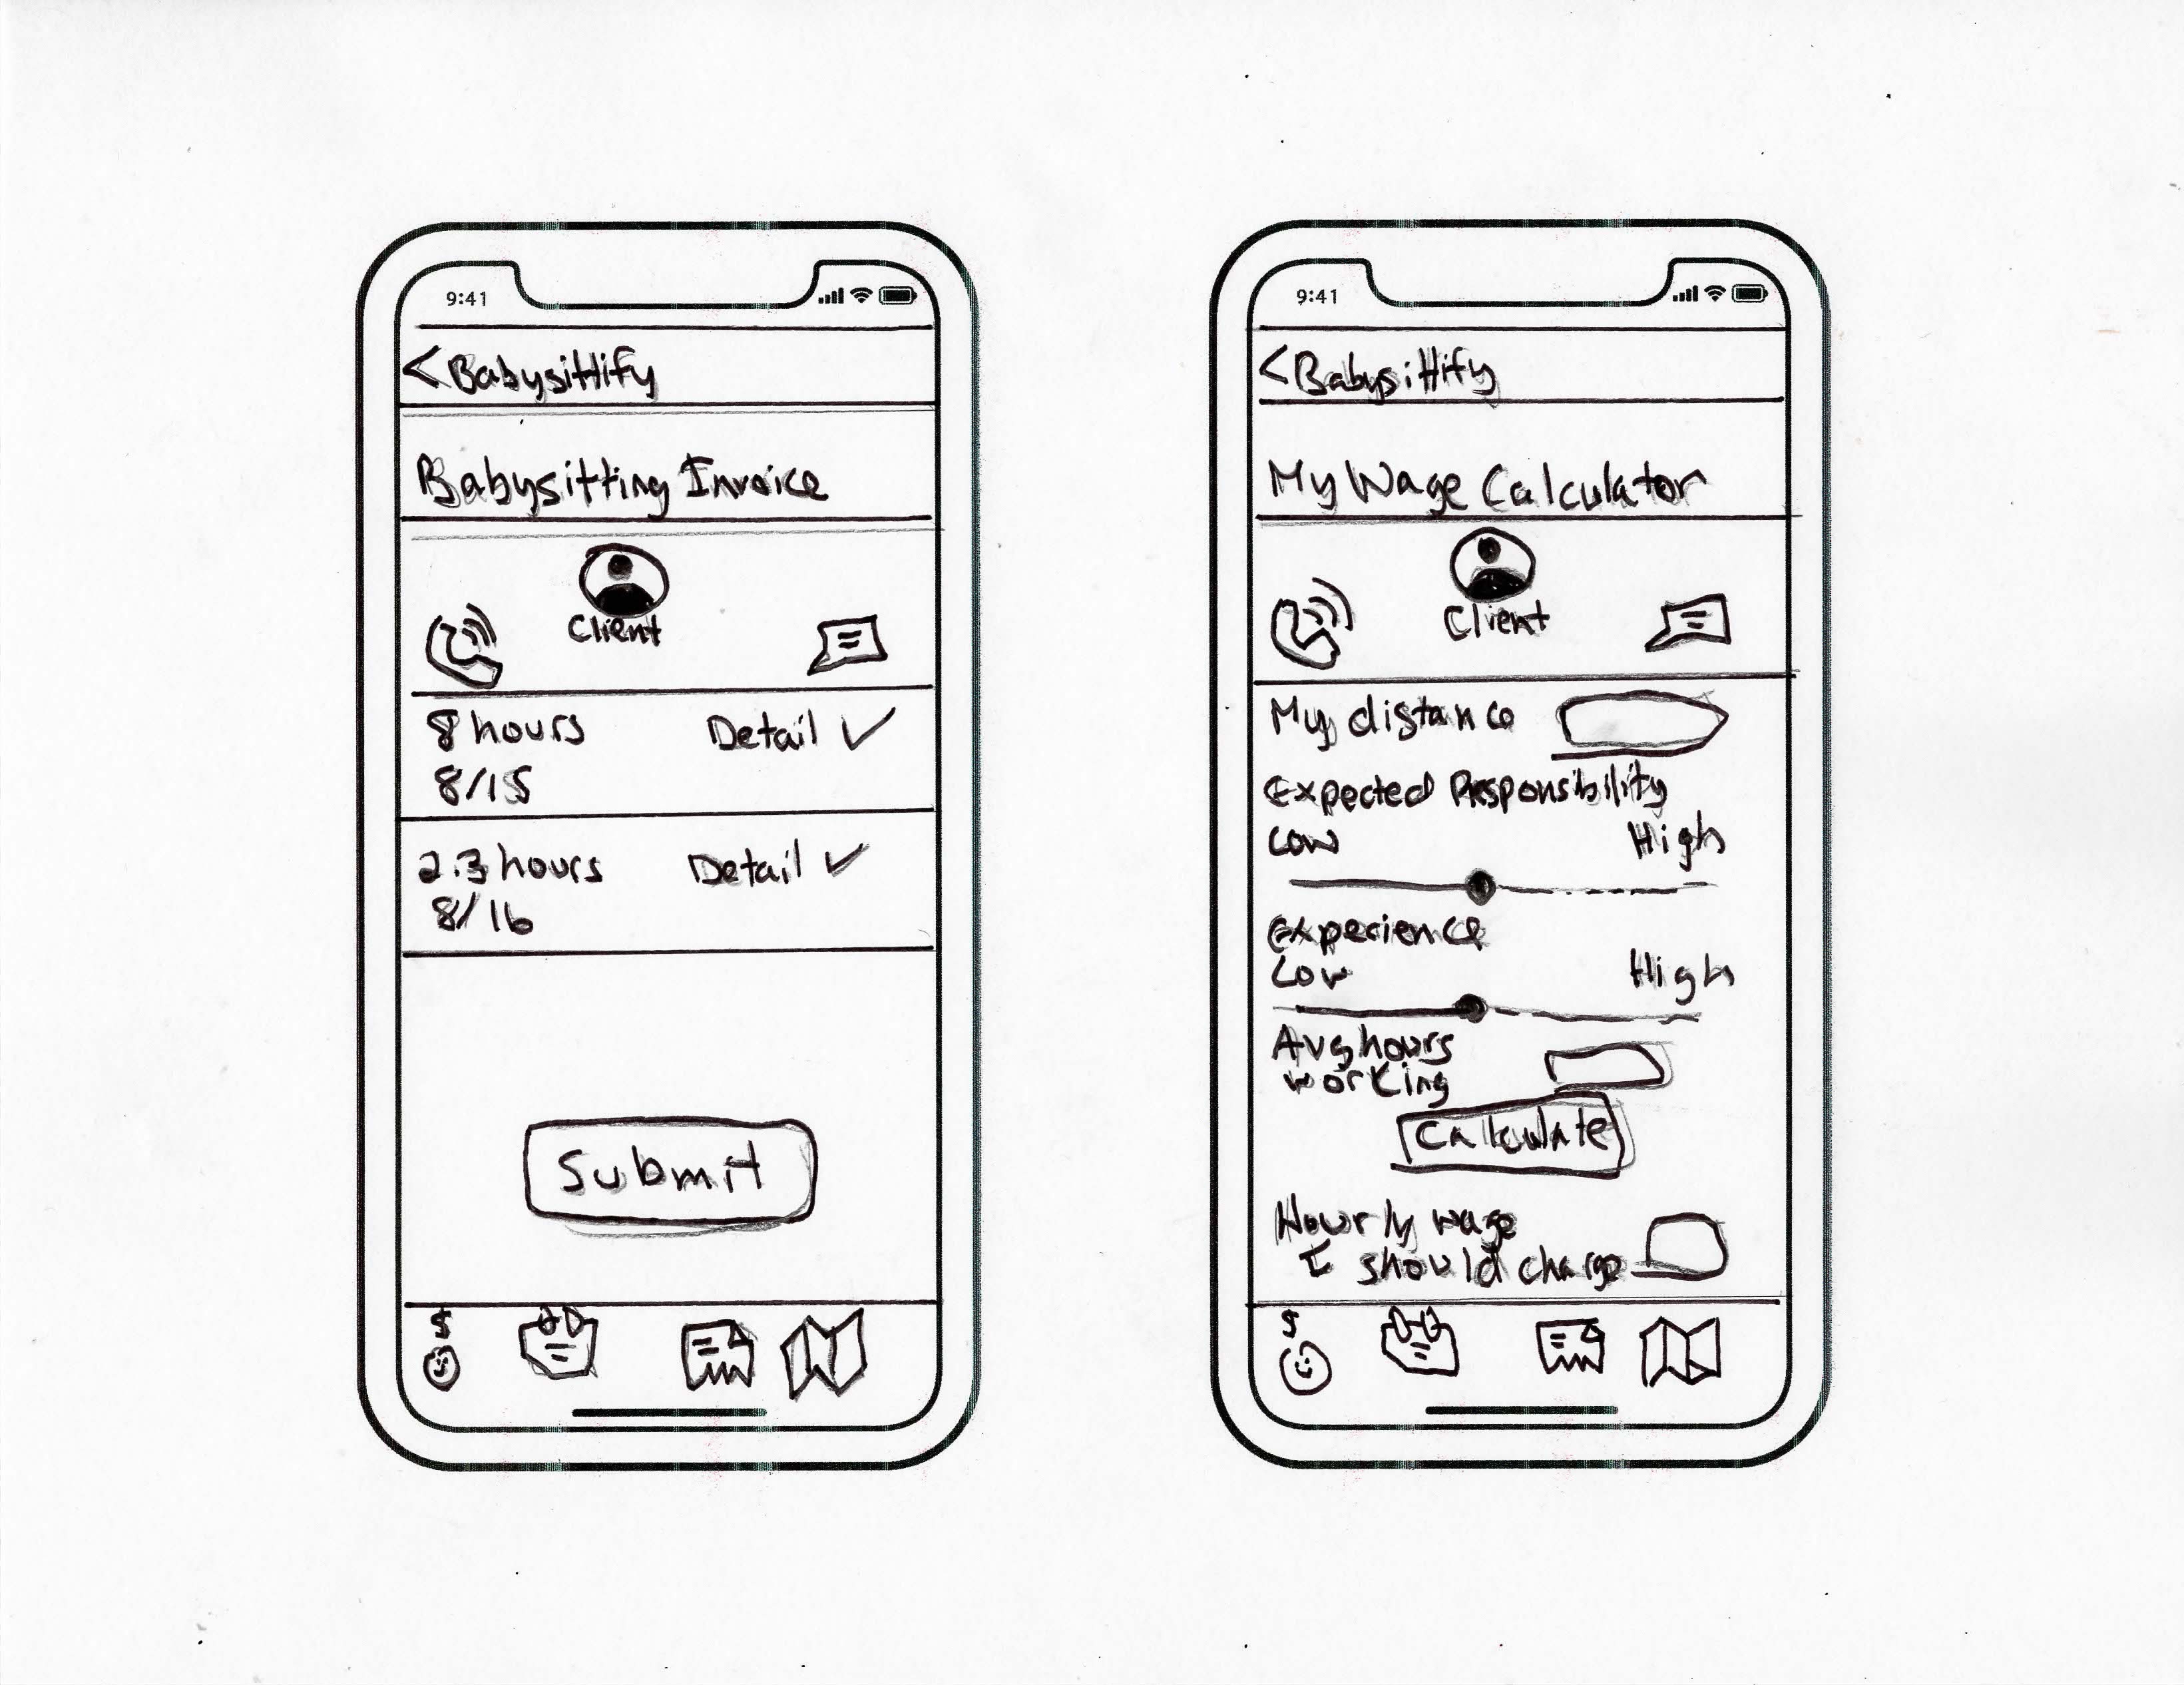 9:41
<Babysittify
Babysitting Invoice
Client
8 hours Detail ✓
8/15
2.3 hours Detail ✓
8/16
Submit
$
9:41
<Babysittify
My Wage Calculator
Client
My distance
Expected Responsibility
Low High
Experience
Low High
Avg hours
working
Calculate
Hourly wage
I should charge
$